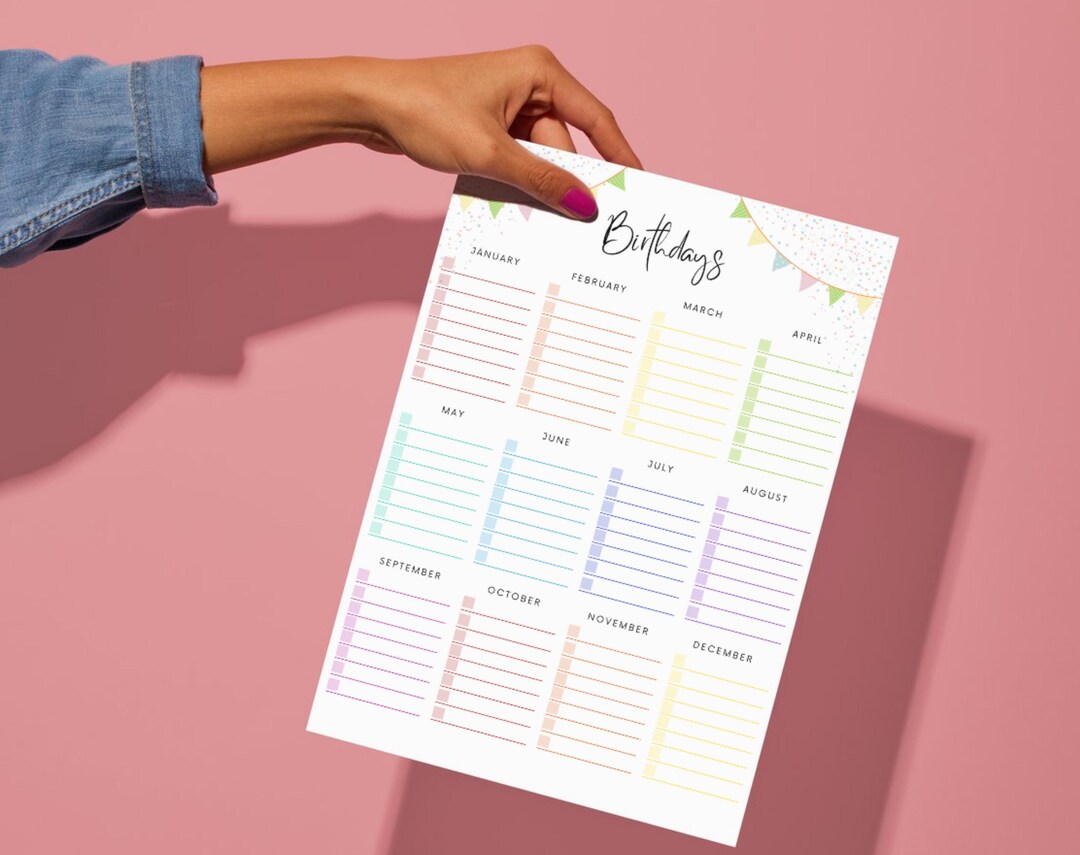 Birthdays
JANUARY
FEBRUARY
MARCH
APRIL
MAY
JUNE
JULY
AUGUST
SEPTEMBER
OCTOBER
NOVEMBER
DECEMBER